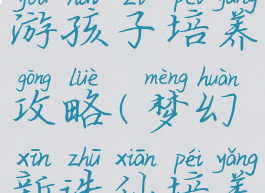 yóu hái zǐ péi yǎng
游孩子培养
gōng lüè mèng huàn
攻略(梦幻
xīn zhū xiān péi yǎng
新诛仙培养